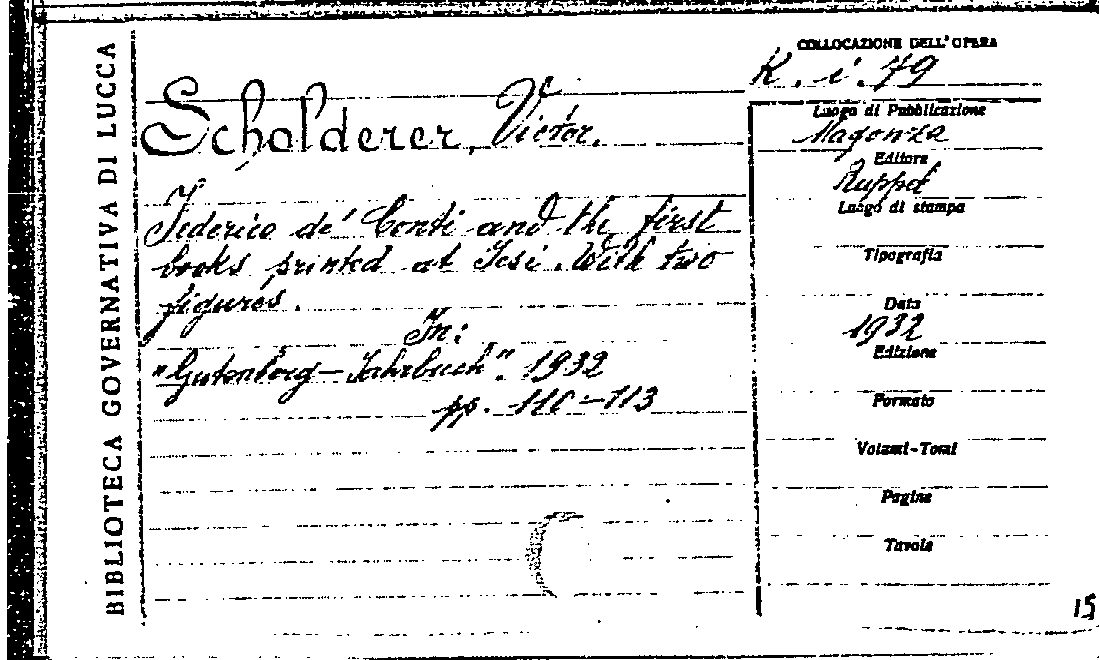 BIBLIOTECA GOVERNATIVA DI LUCCA
COLLOCAZIONE DELL'OPERA
K. i. 79
Scholderer, Victor.
Federico de' Conti and the first
books printed at Jesi. With two
figures.
In:
"Gutenberg-Jahrbuch". 1932
pp. 110-113
Luogo di Pubblicazione
Magonza
Editore
Ruppel
Luogo di stampa
Tipografia
Data
1932
Edizione
Formato
Volumi-Tomi
Pagine
Tavole
15